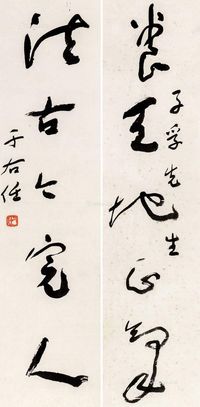 養天地正氣
子孚先生
法古今完人
于右任